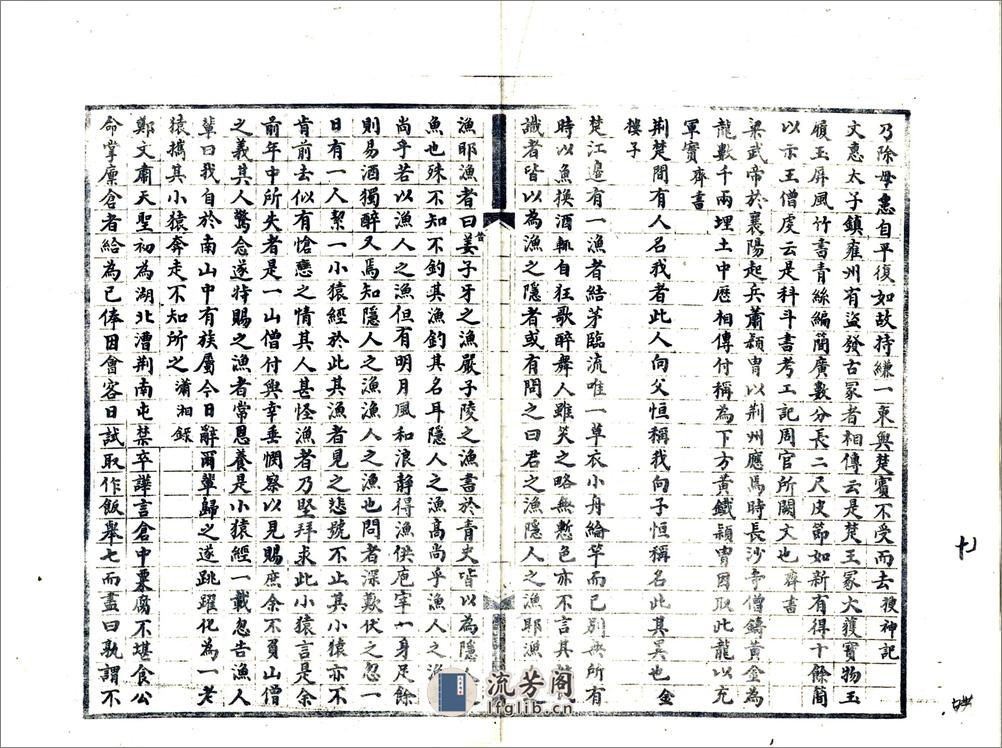 乃除母患自平復如故持縑一束與楚賓不受而去 搜神記
文惠太子鎮雍州有盜發古冢者相傳云是楚王冢大獲寶物玉
履玉屏風竹書青絲編簡廣數分長二尺皮節如新有得十餘簡
以示王僧虔云是科斗書考工記周官所闕文也 齊書
梁武帝於襄陽起兵蕭穎胄以荆州應焉時長沙寺僧鑄黃金為
龍數千兩埋土中歷相傳付稱為下方黃鐵穎胄因取此龍以充
軍實 齊書
荆楚間有人名我者此人向父恒稱我向子恒稱名此其異也 金
樓子
楚江邊有一漁者結茅臨流唯一草衣小舟綸竿而已別無所有
時以魚換酒輒自狂歌醉舞人雖笑之略無慙色亦不言其
識者皆以為漁之隱者或有問之曰君之漁隱人之漁耶漁
漁耶漁者曰昔姜子牙之漁嚴子陵之漁書於青史皆以為隱
魚也殊不知不釣其漁釣其名耳隱人之漁高尚乎漁人之漁
尚乎若以漁人之漁但有明月風和浪靜得漁供庖宰一身足餘
則易酒獨醉又焉知隱人之漁漁人之漁也問者深歎伏之忽一
日有一人絜一小猿經於此其漁者見之悲號不止其小猿亦不
肯前去似有愴戀之情其人甚怪漁者乃堅拜求此小猿言是余
前年中所失者是一山僧付與幸垂憫察以見賜庶余不負山僧
之義其人驚念遂持賜之漁者常恩養是小猿經一載忽告漁人
輩曰我自於南山中有族屬今日辭爾輩歸之遂跳躍化為一老
猿攜其小猿奔走不知所之 瀟湘錄
鄭文肅天聖初為湖北漕荆南屯禁卒譁言倉中粟腐不堪食公
命掌廩倉者給為己俸因會客日試取作飯舉七而盡曰孰謂不
流芳阁
lfglib.cn